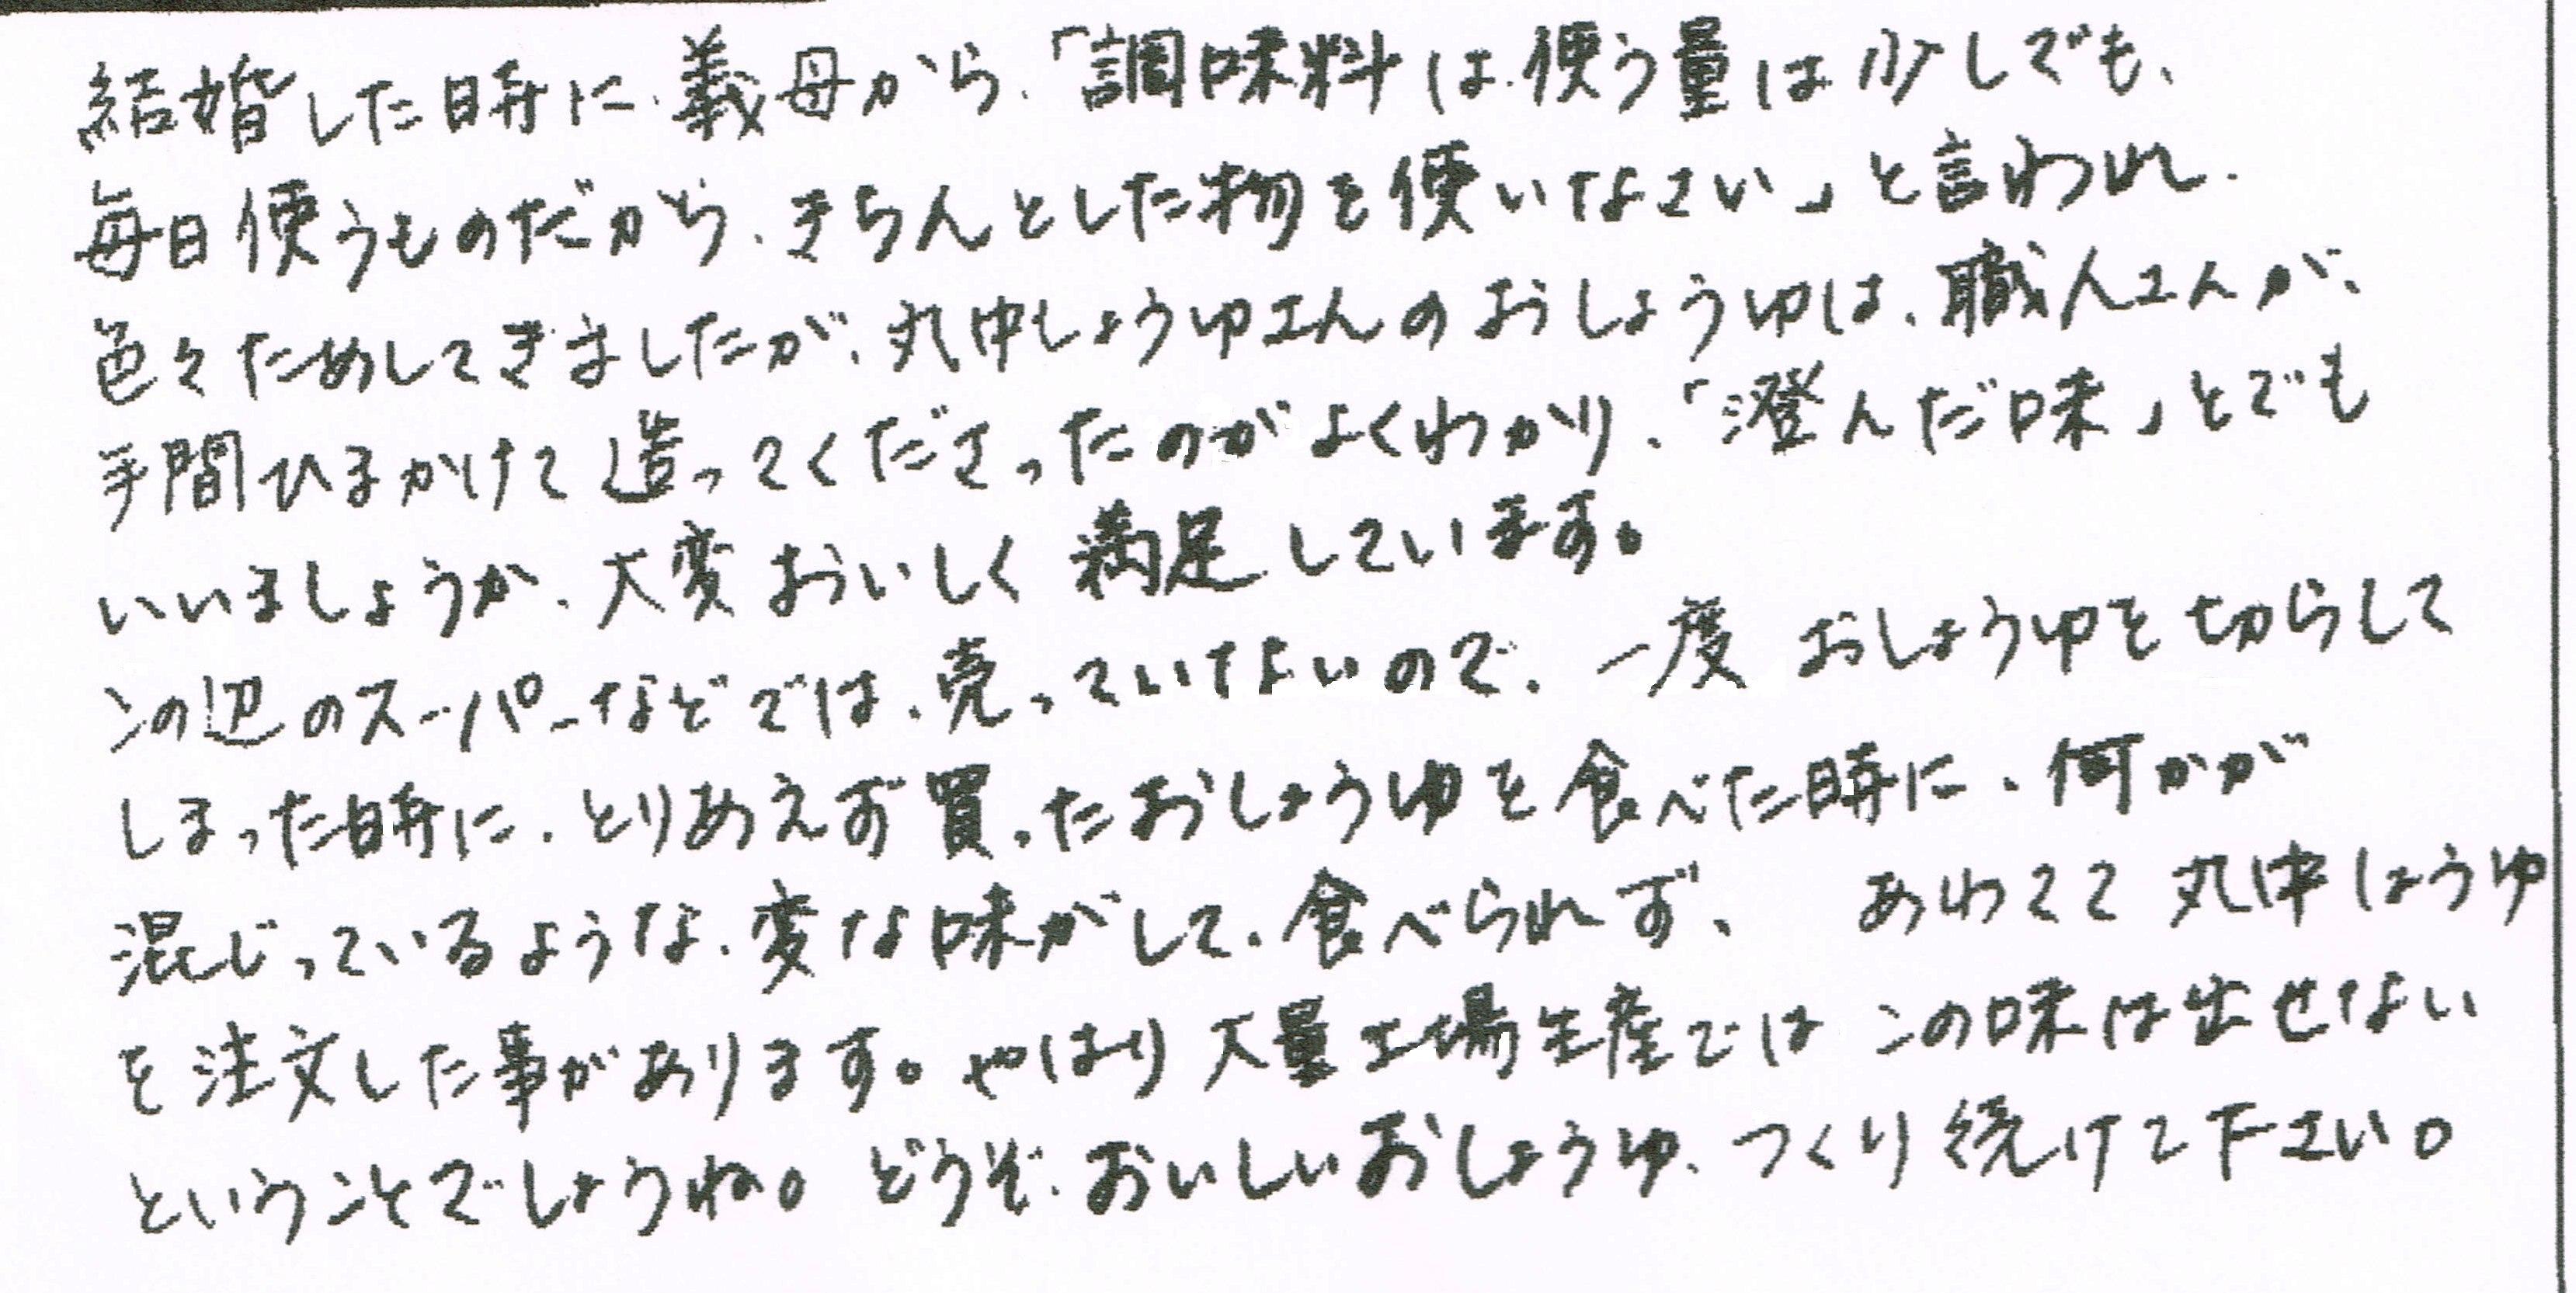 結婚した時に、義母から、「調味料は、使う量は少しでも、
毎日使うものだから、きちんとした物を使いなさい」と言われ、
色々ためしてきましたが、丸中しょうゆさんのおしょうゆは、職人さんが、
手間ひまかけて造ってくださったのがよくわかり、「澄んだ味」とでも
いいましょうか、大変おいしく満足しています。
この辺のスーパーなどでは、売っていないので、一度おしょうゆを切らして
しまった時に、とりあえず買ったおしょうゆを食べた時に、何かが
混じっているような、変な味がして、食べられず、あわてて丸中しょうゆ
を注文した事があります。やはり大量工場生産ではこの味は出せない
ということでしょうね。どうぞ、おいしいおしょうゆ、つくり続けて下さい。